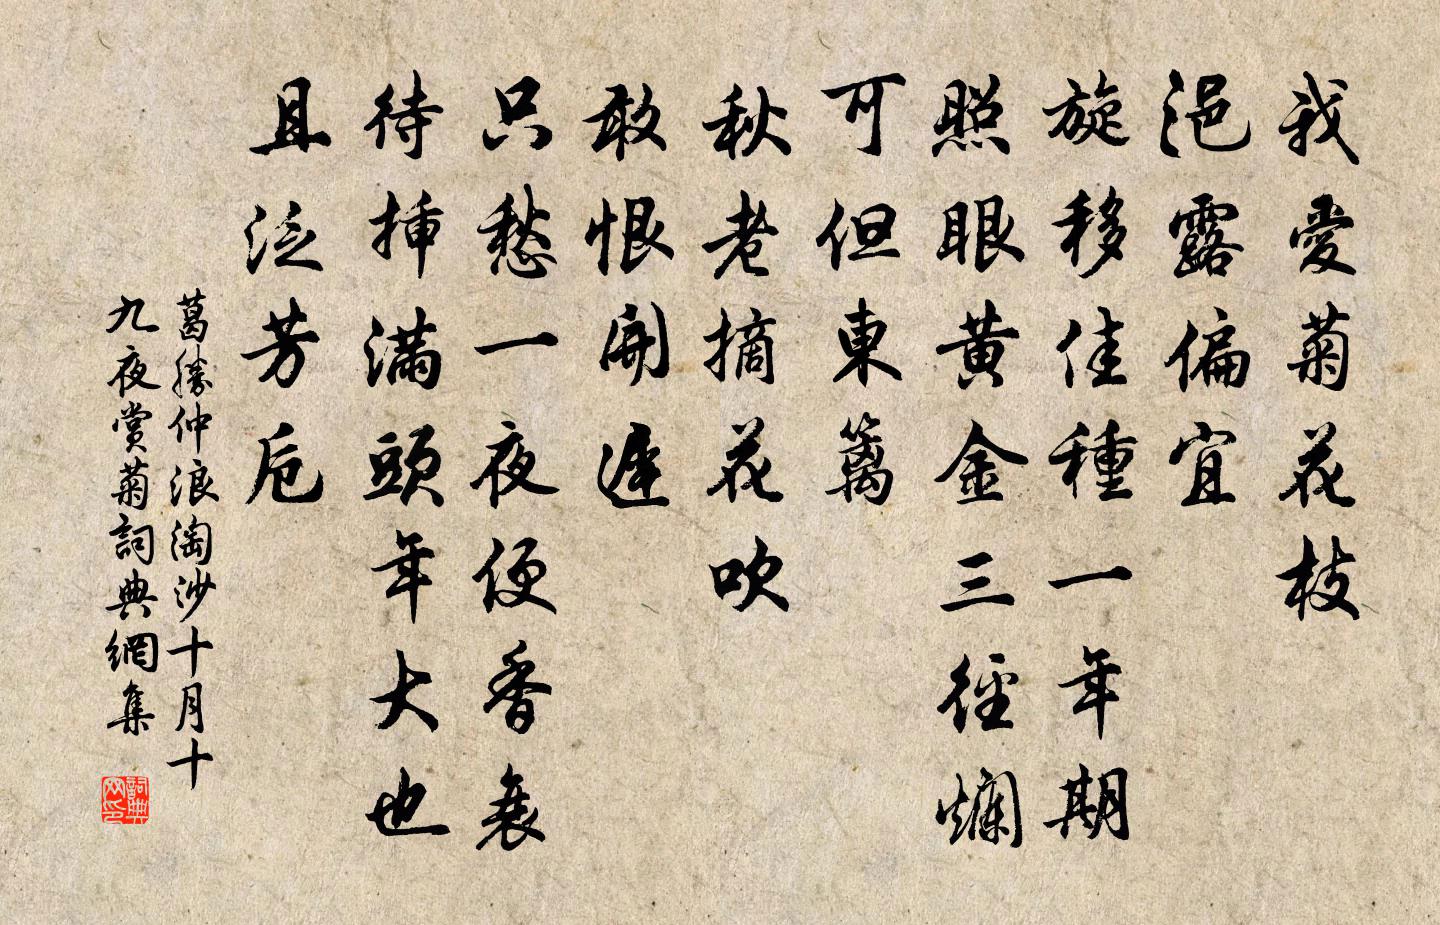 我愛菊花枝
浥露偏宜
旋移佳種一年期
照眼黃金三徑爛
可但東籬
秋老摘花吹
敢恨開遲
只愁一夜便香衰
待挿滿頭年大也
且泛芳卮
葛勝仲浪淘沙十月十
九夜賞菊詞典網集
詞典
网印